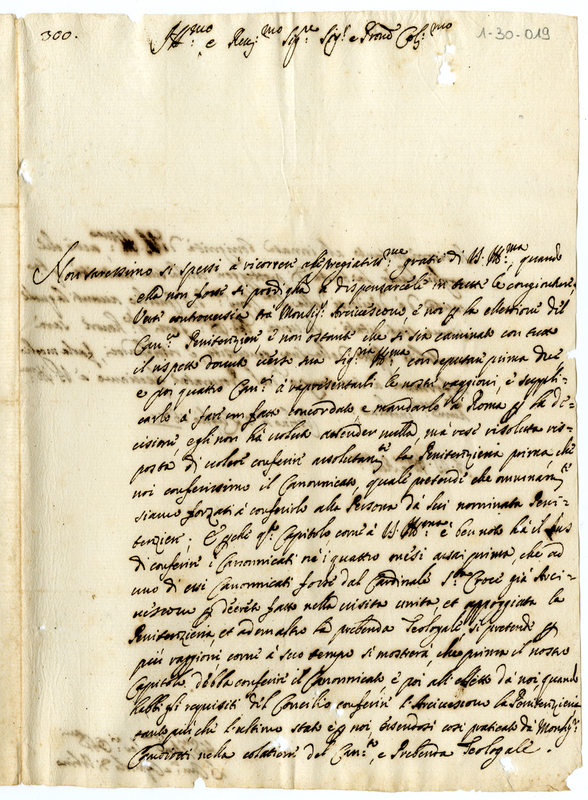 300.
Ill:mo e Rev:mo Sig:re Sig:r e Pron Col:mo
1-30-019
Non saressimo si spessi à ricorrere alle pregiatis:me gratie di VS. Ill:ma, quando
ella non fosse si prodigha à dispensarcele in tutte le congionture
Verte controversia tra Monsig:r Arcivescovo e noi p la elletione del
Can:co Penitenziere è non ostante che si sia caminato con tutto
il rispetto dovuto verso sua Sig:ria Ill:ma con deputare prima due
e poi quattro Can:ci à rapresentarli le nostri raggioni, è suppli-
carlo à fare un fatto concordato e mandarlo à Roma p la de-
cisione, egli non hà voluto attender nulla, mà rese risoluta ris-
posta di volere conferire assolutam:te la Penitenzieria prima che
noi conferissimo il Canonicato, quale pretende che omninam:te
siamo forzati à conferirlo alla Persona da lui nominata Peni-
tenziere; E perche q:sto Capitolo come à VS. Ill:ma è ben noto hà il jus
di conferire i Canonicati ne i quattro mesi assai prima, che ad
uno di essi Canonicati fosse dal Cardinale S:ta Croce già Arci-
vescovo p decreto fatto nella visita unita, et appoggiata la
Penitenzieria et ad un altro la prebenda Teologale, si pretende p
più raggioni come à suo tempo si mostrerà, che prima il nostro
Capitolo debba conferire il Canonicato, è poi all'eletto da noi quando
habbi gli requisiti del Concilio conferire l'Arcivescovo la Penitenzieria
tanto più che l'ultimo stato è p noi essendosi così praticato da Monsig:r
nella colatione del Can:to, e Prebenda Teologale.